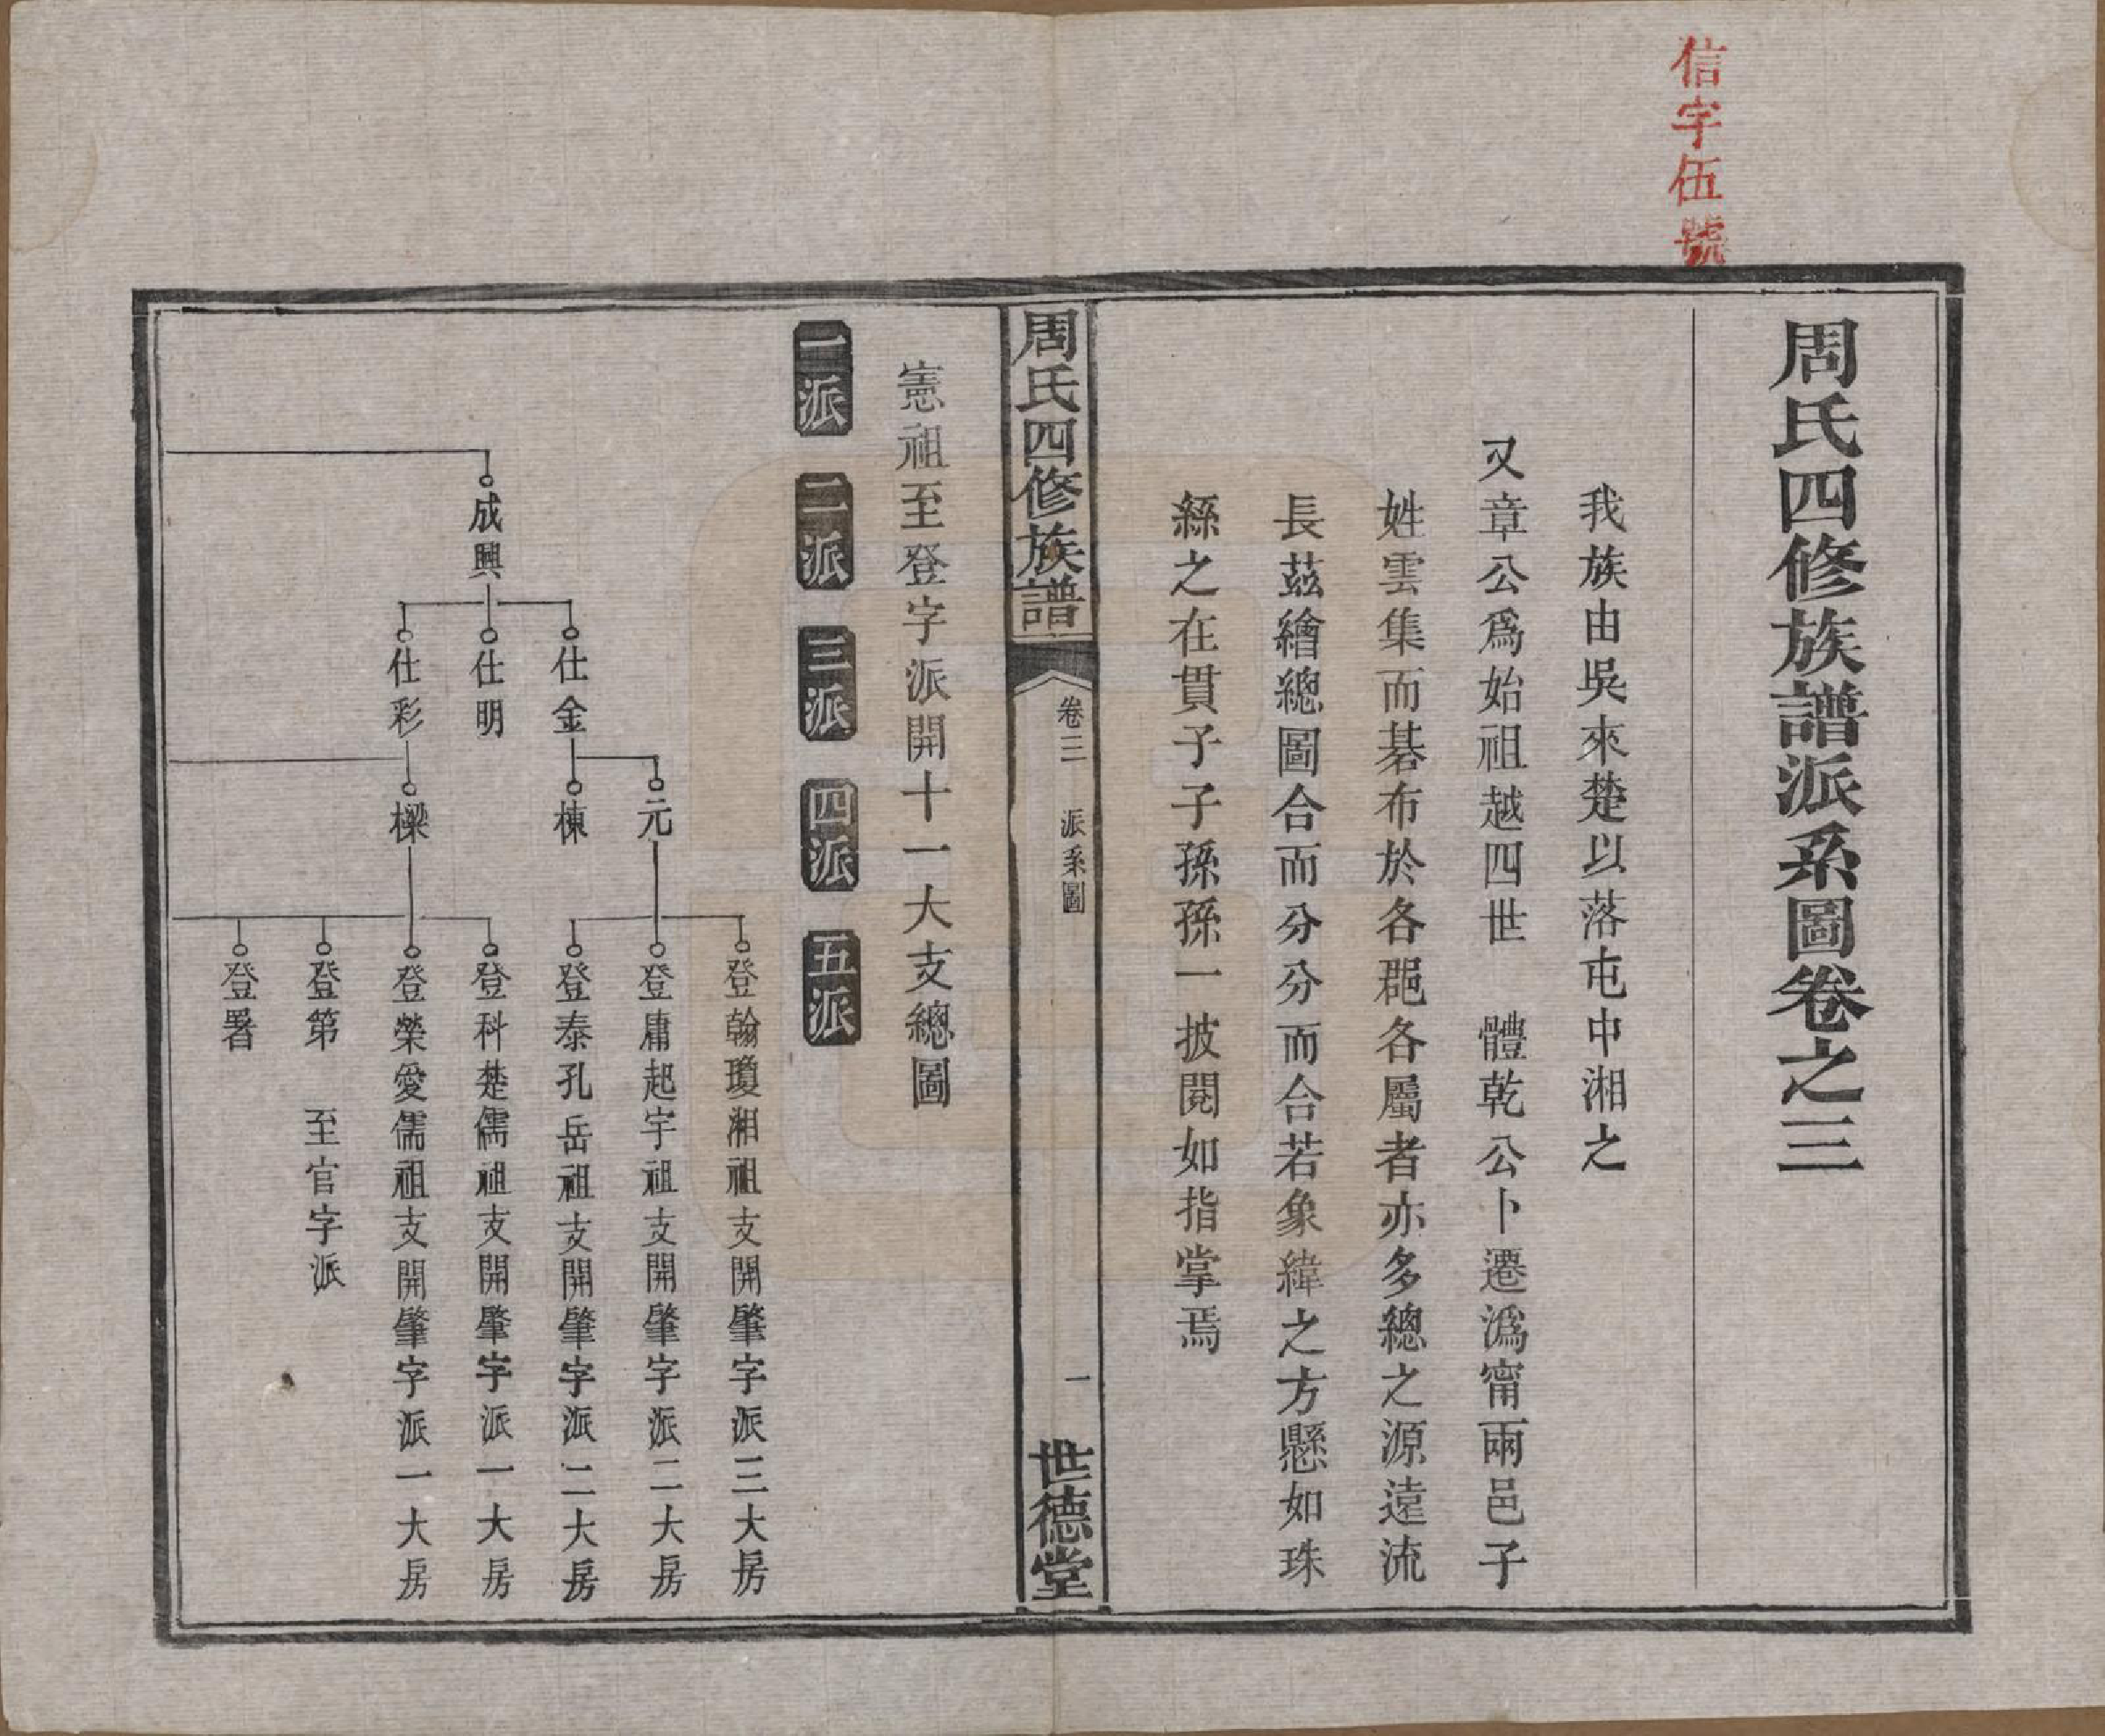 信字伍號
周氏四修族譜派系圖卷之三
我族由吳來楚以落屯中湘之
又章公爲始祖越四世　體乾公卜遷潙甯兩邑子
姓雲集而碁布於各郡各屬者亦多總之源遠流
長茲繪總圖合而分分而合若象緯之方懸如珠
絲之在貫子子孫孫一披閱如指掌焉
周氏四修族譜
卷三　派系圖
一
世德堂
憲祖至登字派開十一大支總圖
一派　二派　三派　四派　五派
登翰瓊湘祖支開肇字派三大房
元
登庸起宇祖支開肇字派二大房
仕金
棟
登泰孔岳祖支開肇字派二大房
成興
仕明
登科楚儒祖支開肇字派一大房
仕彩
樑
登榮愛儒祖支開肇字派一大房
登第　至官字派
登署